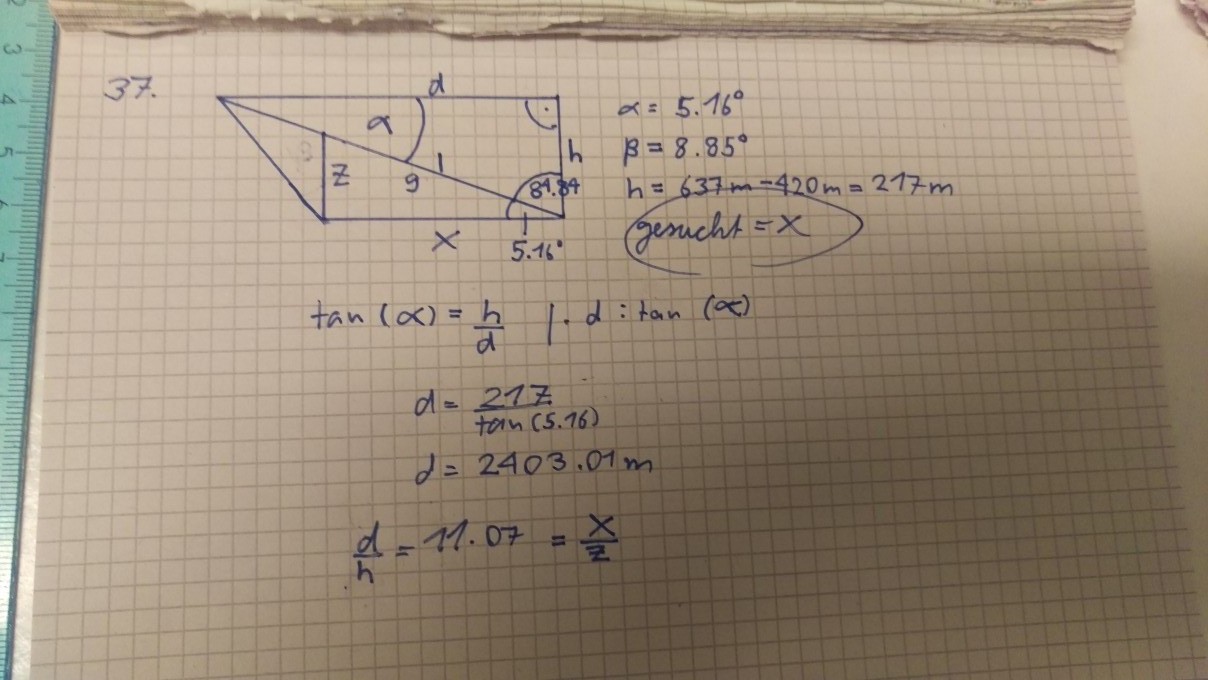 37.
d
α
h
z
g
84.84
x
5.16°
α = 5.16°
β = 8.85°
h = 637m - 420m = 217m
gesucht = x
tan (α) = h/d | · d : tan (α)
d = 217/tan(5.16)
d = 2403.01m
d/h = 11.07 = x/z
2
3
4
5
6
7